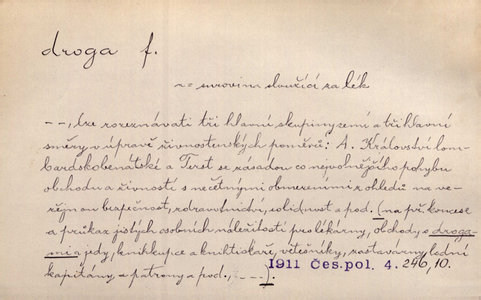 droga f.
~ surovina sloužící za lék
- -, lze rozeznávati tři hlavní skupiny zemí a tři hlavní
směry v úpravě živnostenských poměrů: A. Království lom-
bardskobenátské a Terst se zásadou co nejvolnějšího pohybu
obchodu a živností s nečetnými obmezeními z ohledů na ve-
řejnou bezpečnost, zdravotnictví, solidnost a pod. (na př. koncese
a průkaz jistých osobních náležitostí pro lékárny, obchod, s droga-
mi a jedy, knihkupce a knihtiskaře, vetešníky, zastavárny, lodní
kapitány, a patrony a pod., - - -).
1911 Čes. pol. 4. 246, 10.